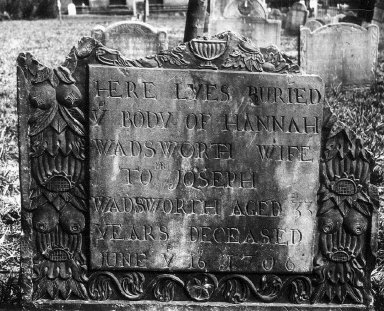 HERE LYES BURIED
Y BODY OF HANNAH
WADSWORTH WIFE
TO JOSEPH
WADSWORTH AGED 33
YEARS DECEASED
JUNE Y 16 1706